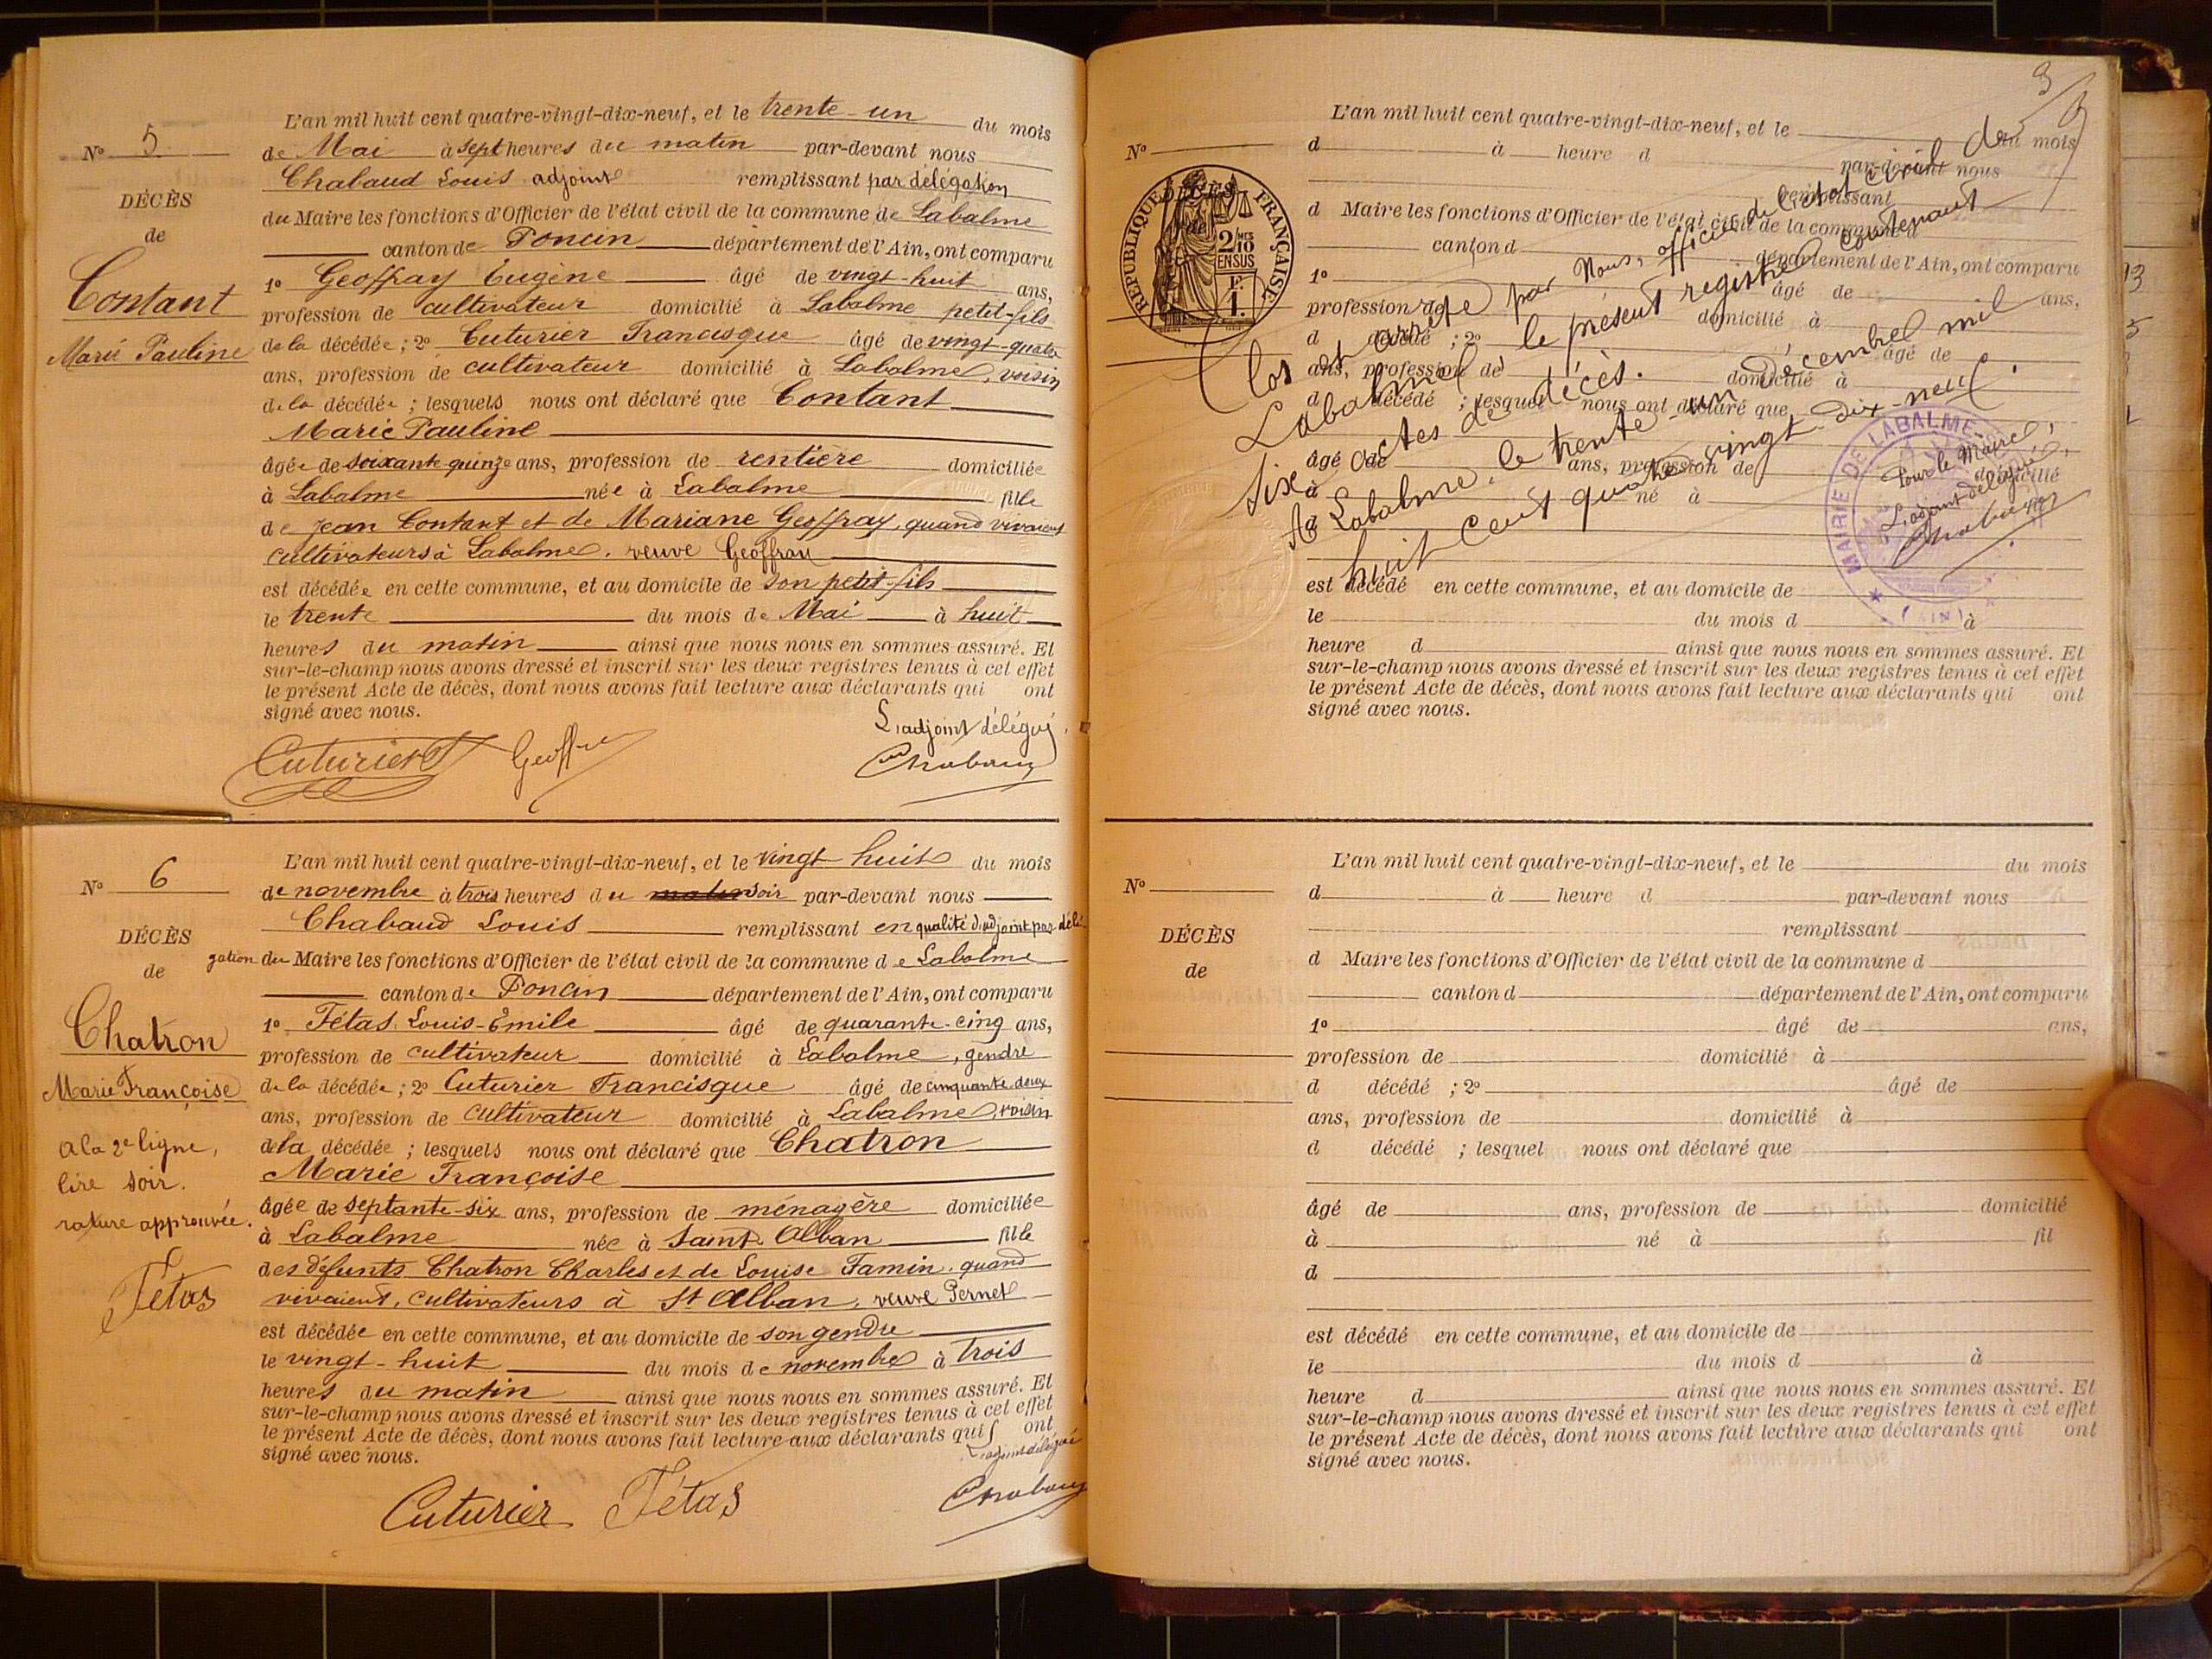 N° 5
DÉCÈS
de
Contant
Marie Pauline
L'an mil huit cent quatre-vingt-dix-neuf, et le trente-un du mois
de Mai à sept heures du matin par-devant nous
Chabaud Louis adjoint remplissant par délégation
du Maire les fonctions d'Officier de l'état civil de la commune de Labalme
canton de Poncin département de l'Ain, ont comparu
1° Geoffray Eugène âgé de vingt-huit ans,
profession de cultivateur domicilié à Labalme petit-fils
de la décédée ; 2° Cuturier Francisque âgé de vingt-quatre
ans, profession de cultivateur domicilié à Labalme, voisin
de la décédée ; lesquels nous ont déclaré que Contant
Marie Pauline
âgée de soixante quinze ans, profession de rentière domiciliée
à Labalme née à Labalme fille
de Jean Contant et de Mariane Geoffray, quand vivaient
cultivateurs à Labalme, veuve Geoffray
est décédée en cette commune, et au domicile de son petit-fils
le trente du mois de Mai à huit
heures du matin ainsi que nous nous en sommes assuré. Et
sur-le-champ nous avons dressé et inscrit sur les deux registres tenus à cet effet
le présent Acte de décès, dont nous avons fait lecture aux déclarants qui ont
signé avec nous.
L'adjoint délégué,
Cuturier Geoffray Chabaud
N° 6
DÉCÈS
de
Chatron
Marie Françoise
A la 2e ligne,
lire soir.
rature approuvée.
Tétas
L'an mil huit cent quatre-vingt-dix-neuf, et le vingt huit du mois
de novembre à trois heures du matin soir par-devant nous
Chabaud Louis remplissant en qualité d'adjoint par délé
gation du Maire les fonctions d'Officier de l'état civil de la commune de Labalme
canton de Poncin département de l'Ain, ont comparu
1° Tétas Louis-Emile âgé de quarante-cinq ans,
profession de cultivateur domicilié à Labalme, gendre
de la décédée ; 2° Cuturier Francisque âgé de cinquante-deux
ans, profession de cultivateur domicilié à Labalme, voisin
de la décédée ; lesquels nous ont déclaré que Chatron
Marie Françoise
âgée de septante-six ans, profession de ménagère domiciliée
à Labalme née à Saint Alban fille
des défunts Chatron Charles et de Louise Famin, quand
vivaient, cultivateurs à St Alban, veuve Pernet
est décédée en cette commune, et au domicile de son gendre
le vingt-huit du mois de novembre à trois
heures du matin ainsi que nous nous en sommes assuré. Et
sur-le-champ nous avons dressé et inscrit sur les deux registres tenus à cet effet
le présent Acte de décès, dont nous avons fait lecture aux déclarants qui ont
signé avec nous.
L'adjoint délégué
Cuturier Tétas Chabaud
N°
DÉCÈS
de
RÉPUBLIQUE FRANÇAISE
2/10 MES
EN SUS
F.
1.
L'an mil huit cent quatre-vingt-dix-neuf, et le du mois
d à heure d par-devant nous
remplissant
d Maire les fonctions d'Officier de l'état civil de la commune d
canton d département de l'Ain, ont comparu
1° âgé de ans,
profession de domicilié à
d décédé ; 2° âgé de
ans, profession de domicilié à
d décédé ; lesquel nous ont déclaré que
âgé de ans, profession de domicilié
à né à
est décédé en cette commune, et au domicile de
le du mois d à
heure d ainsi que nous nous en sommes assuré. Et
sur-le-champ nous avons dressé et inscrit sur les deux registres tenus à cet effet
le présent Acte de décès, dont nous avons fait lecture aux déclarants qui ont
signé avec nous.
Clos et arrêté par Nous, officier de l'état civil de
Labalme, le présent registre contenant
six actes de décès.
A Labalme, le trente-un décembre mil
huit cent quatre vingt-dix-neuf.
Pour le Maire,
L'adjoint délégué,
Chabaud
MAIRIE DE LABALME
(AIN)
N°
DÉCÈS
de
L'an mil huit cent quatre-vingt-dix-neuf, et le du mois
d à heure d par-devant nous
remplissant
d Maire les fonctions d'Officier de l'état civil de la commune d
canton d département de l'Ain, ont comparu
1° âgé de ans,
profession de domicilié à
d décédé ; 2° âgé de
ans, profession de domicilié à
d décédé ; lesquel nous ont déclaré que
âgé de ans, profession de domicilié
à né à fil
d
est décédé en cette commune, et au domicile de
le du mois d à
heure d ainsi que nous nous en sommes assuré. Et
sur-le-champ nous avons dressé et inscrit sur les deux registres tenus à cet effet
le présent Acte de décès, dont nous avons fait lecture aux déclarants qui ont
signé avec nous.